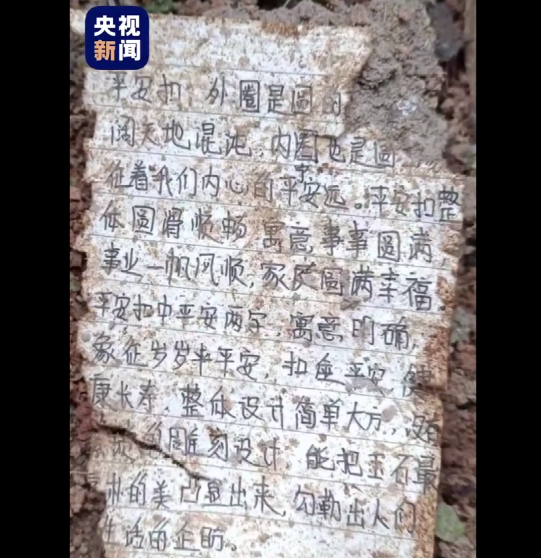 央视
新闻
平安扣，外圈是圆的
阔天地混沌，内圈也是圆
征着我们内心的平安宁远。平安扣整
体圆滑顺畅 寓意事事圆满，
事业一帆风顺，家庭圆满幸福。
平安扣中平安两字，寓意明确，
象征岁岁平平安，扣座平安 健
康长寿，整体设计简单大方，没有
雕刻设计 能把玉石最
的美凸显出来，勾勒出人们
生活的企盼。